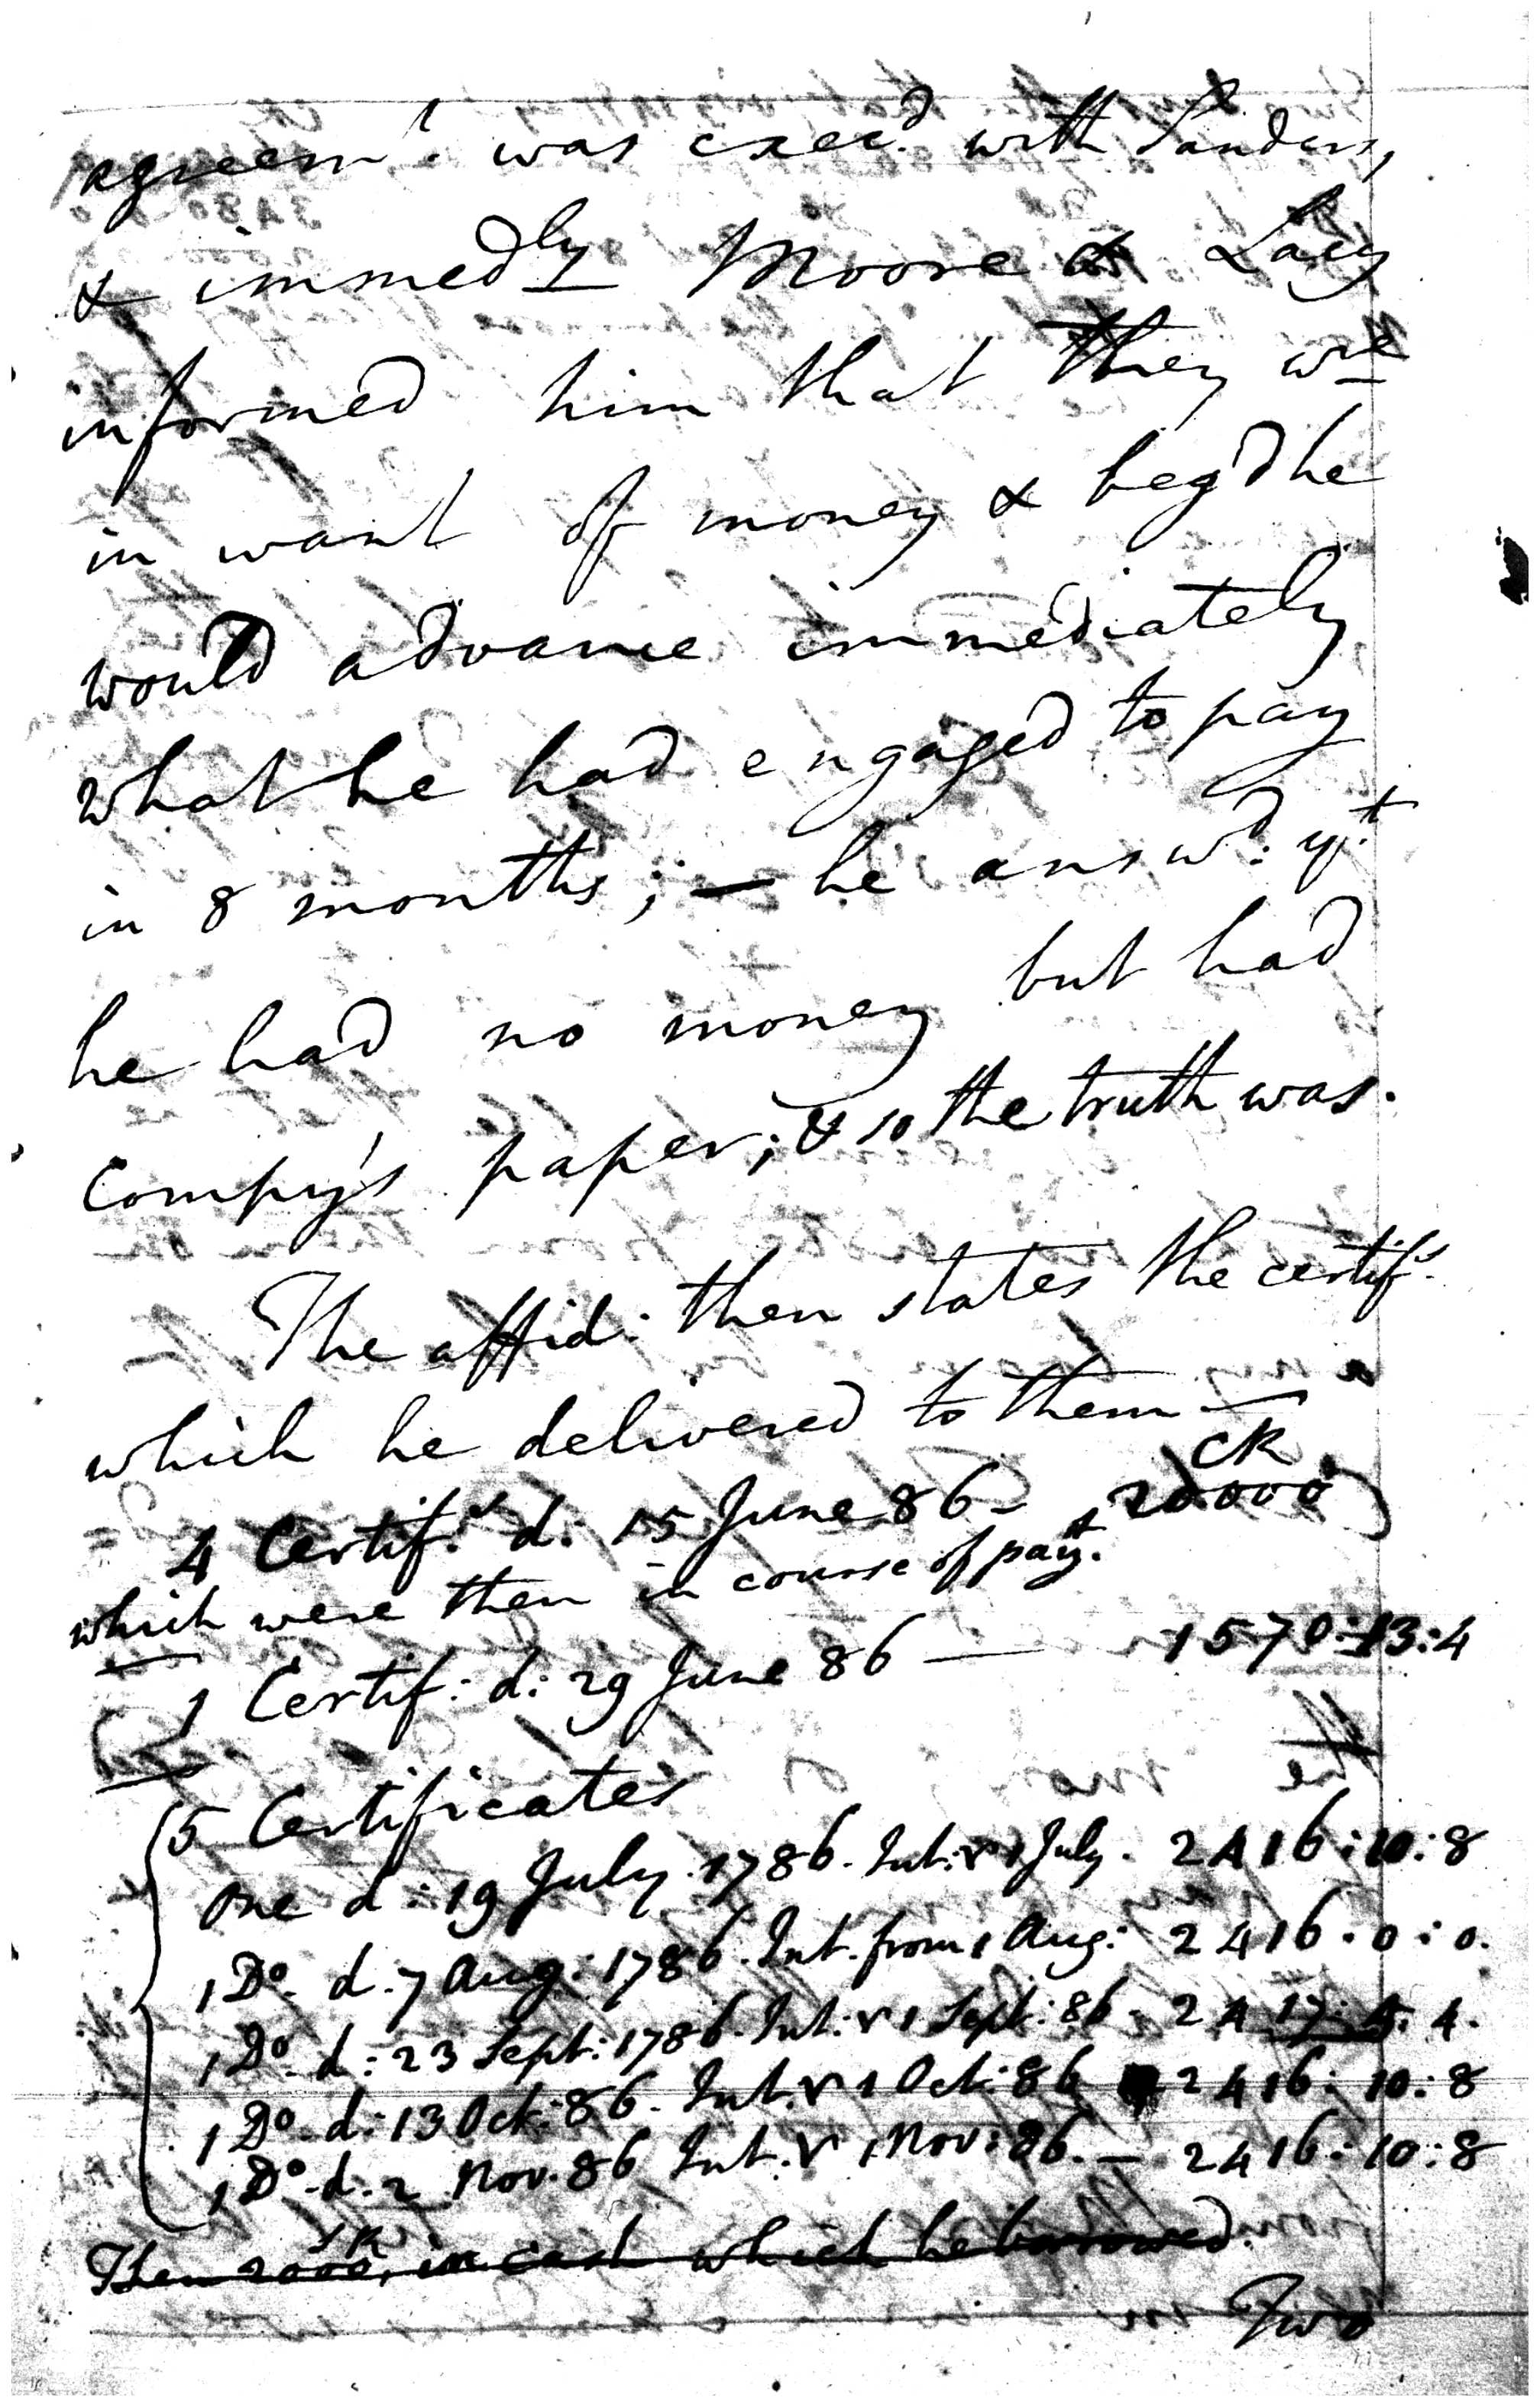 agreemt. was execd. with Sanders,
& immedly Moore & Lacy
informed him that they wre
in want of money & beg'd he
would advance immediately
what he had engaged to pay
in 8 months; — he answd: yt.
he had no money but had
Compy's paper; & so the truth was.
The affid: then states the certifs.
which he delivered to them —
4 Certif:s d: 15 June 86 – CR 20000
which were then in course of payt.
1 Certif: d: 29 June 86 — 1570:13:4
5 Certificates
One d: 19 July 1786. Int: r 1 July. 2416:10:8
1 Do. d. 7 Aug: 1786. Int. from 1 Aug: 2416.0:0.
1 Do. d: 23 Sept: 1786. Int: r 1 Sept: 86 – 2417:4:4.
1 Do. d: 13 Oct: 86. Int. r 1 Oct: 86 2416:10:8
1 Do. d. 2 Nov. 86 Int. r 1 Nov: 86. – 2416:10:8
Then 2000, in cash which he borrowed.
Two